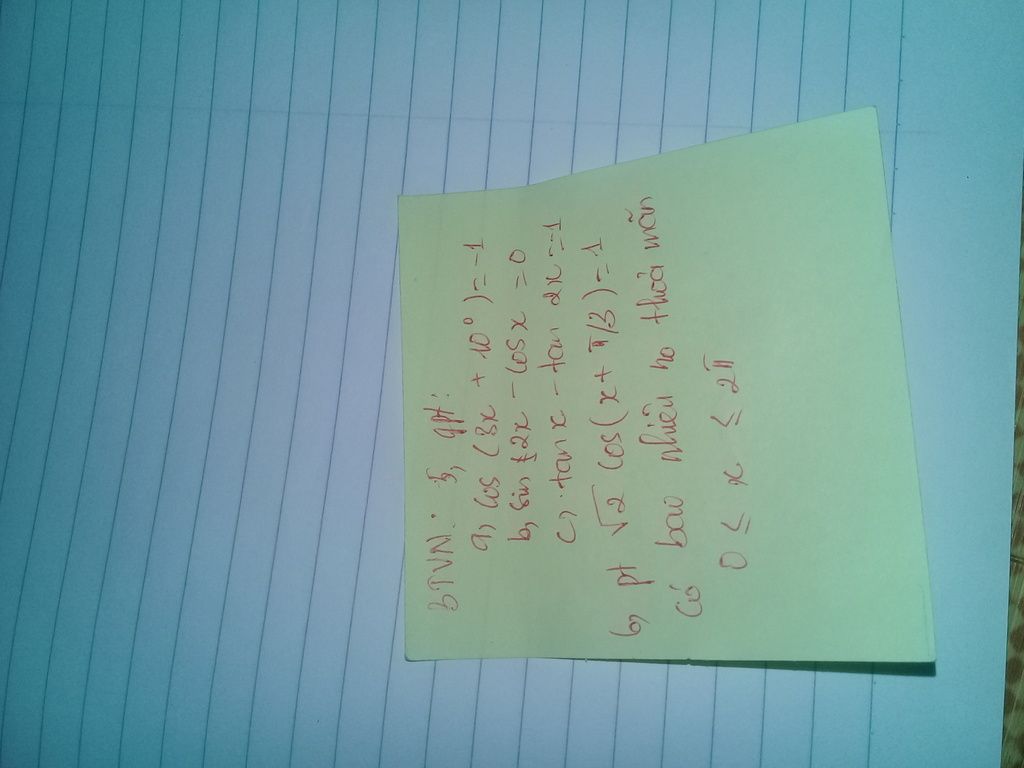 BTVN: 5, gpt:
a, cos (3x + 10°) = -1
b, sin 2x - cos x = 0
c, tan x - tan 2x = -1
6, pt √2 cos(x + π/3) = 1
có bao nhiêu no thoả mãn
0 ≤ x ≤ 2π